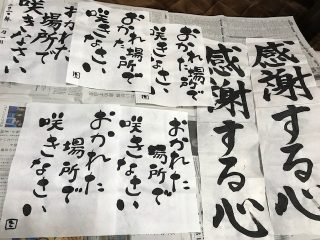 感謝する心
感謝する心
おかれた
場所で
咲きなさい
おかれた
場所で
咲きなさい
おかれた
場所で
咲きなさい
おかれた
場所で
咲きなさい
おかれた
場所で
咲きなさい